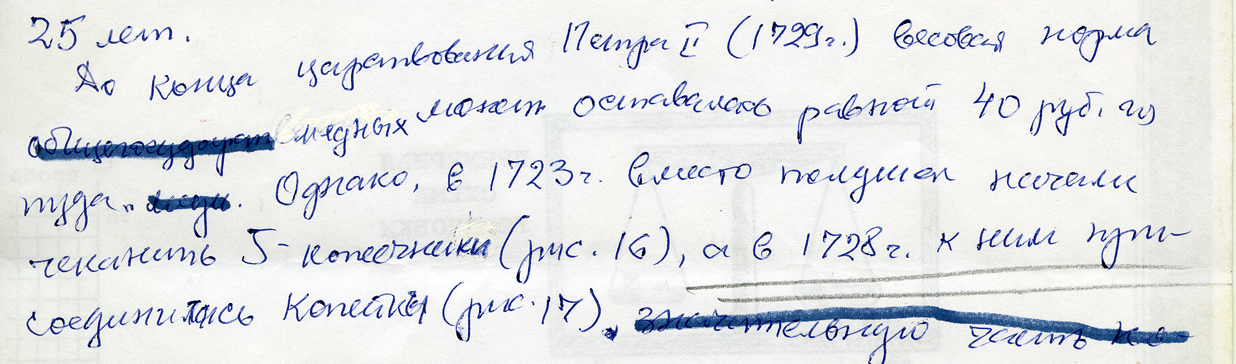 25 лет.
До конца царствования Петра II (1729г.) весовая норма
общегосударств медных монет оставалась равной 40 руб. из
пуда. меди. Однако, в 1723г. вместо полушек начали
чеканить 5-копеечники (рис. 16), а в 1728г. к ним при-
соединились копейки (рис. 17). значительную часть ко-